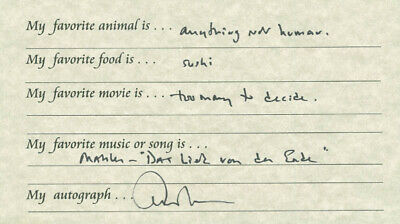 My favorite animal is . . . anything not human.
My favorite food is . . . sushi
My favorite movie is . . . too many to decide.
My favorite music or song is . . .
Mahler - "Das Lied von der Erde"
My autograph . . .